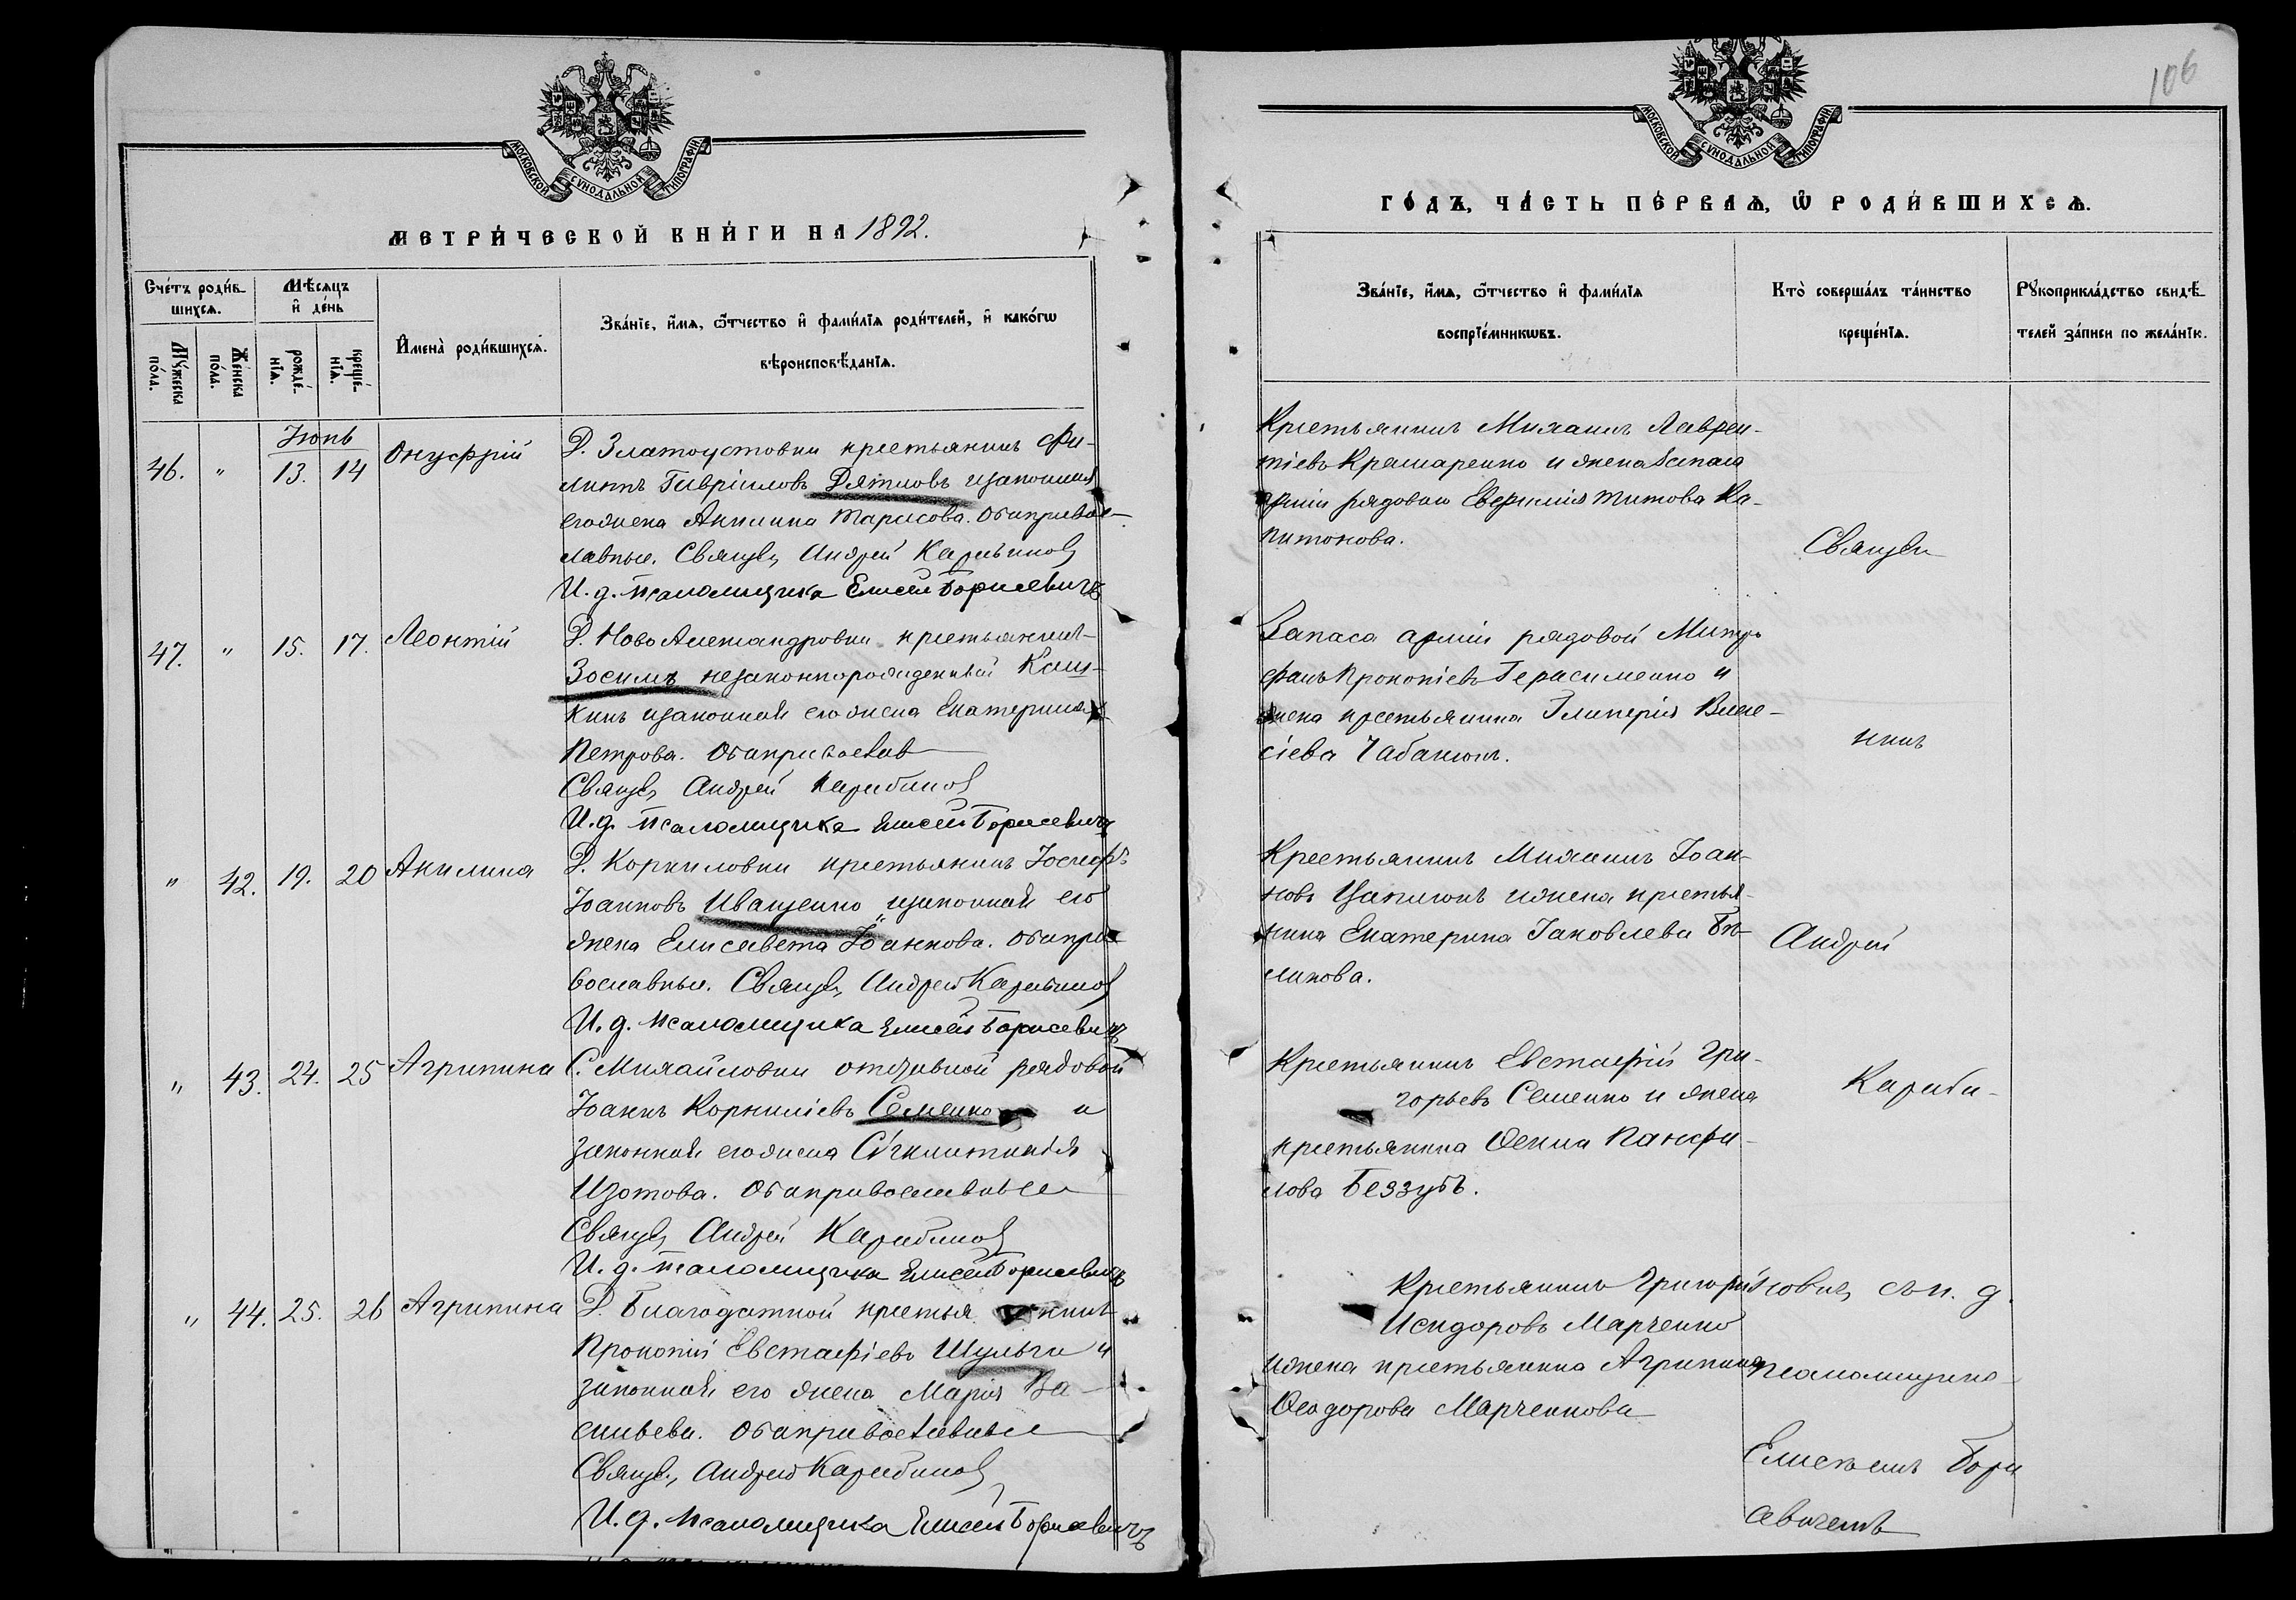 106
МОСКОВСКОЙ СѴНОДАЛЬНОЙ ТИПОГРАФІИ
МЕТРИ́ЧЕСКОЙ КНИ́ГИ НА 1892.
Сче́тъ роди́в-
шихся.
Мѣ́сяцъ
и҆ де́нь
Му́жеска
по́ла.
Же́нска
по́ла.
рожде́-
нїя.
креще́-
нїя.
И҆мена̀ роди́вшихся.
Зва́нїе, и҆́мя, ѻ҆́тчество и҆ фами́лїя роди́телей, и҆ како́гѡ
вѣроисповѣ́данїя.
Іюнь
46. " 13. 14 Онуфрій
Д. Златоустовки крестьянинъ Фи-
липпъ Гавріиловъ Дятловъ и законная
его жена Акилина Тарасова. Оба правос-
лавные. Священ. Андрей Карабиновъ
И. д. псаломщика Елисей Борисевичъ
47. " 15. 17. Леонтій
Д. Ново Александровки крестьянинъ
Зосимъ незаконнорожденный Каш-
кинъ и законная его жена Екатерина
Петрова. Оба православ
Священ. Андрей Карабиновъ
И. д. псаломщика Елисей Борисевичъ
" 42. 19. 20 Акилина
Д. Корниловки крестьянинъ Іосифъ
Іоанновъ Иващенко и законная его
жена Елисавета Іоаннова. Оба пра-
вославные. Священ. Андрей Карабиновъ
И. д. псаломщика Елисей Борисевичъ
" 43. 24. 25 Агрипина
С. Михайловки отставной рядовой
Іоаннъ Корниліевъ Семенко и
законная его жена Сѵнклитикія
Изотова. Оба православные
Священ. Андрей Карабиновъ
И. д. псаломщика Елисей Борисевичъ
" 44. 25. 26 Агрипина
Д. Благодатной крестьянинъ
Прокопій Евстафіевъ Шульга и
законная его жена Марія Ва-
сильева. Оба православные
Священ. Андрей Карабиновъ
И. д. псаломщика Елисей Борисевичъ
МОСКОВСКОЙ СѴНОДАЛЬНОЙ ТИПОГРАФІИ
ГО́ДЪ, ЧА́СТЬ ПЕ́РВАЯ, Ѡ҆ РОДИ́ВШИХСЯ.
Зва́нїе, и҆́мя, ѻ҆́тчество и҆ фами́лїя
воспрїе́мникѡвъ.
Кто̀ соверша́лъ та́инство
креще́нїя.
Рꙋкоприкла́дство свидѣ́-
телей за́писи по жела́нїю.
Крестьянинъ Михаилъ Лаврен-
тіевъ Крамаренко и жена запаса
арміи рядового Евфимія Титова Ка-
питонова.
Запаса арміи рядовой Митро-
фанъ Прокопіевъ Герасименко и
жена крестьянина Гликерія Влас-
сіева Чабанюкъ.
Крестьянинъ Михаилъ Іоан-
новъ Цаплюкъ и жена крестья-
нина Екатерина Іаковлева Бѣ-
ликова.
Крестьянинъ Евстафій Гри-
горьевъ Семенко и жена
крестьянина Ѳекла Панфи-
лова Беззубъ.
Крестьянинъ Григорій
Исидоровъ Марченко
и жена крестьянина Агрипина
Ѳеодорова Марченкова
Священ
никъ
Андрей
Караби-
новъ, съ и. д.
псаломщика
Елисеемъ Бори
севичемъ